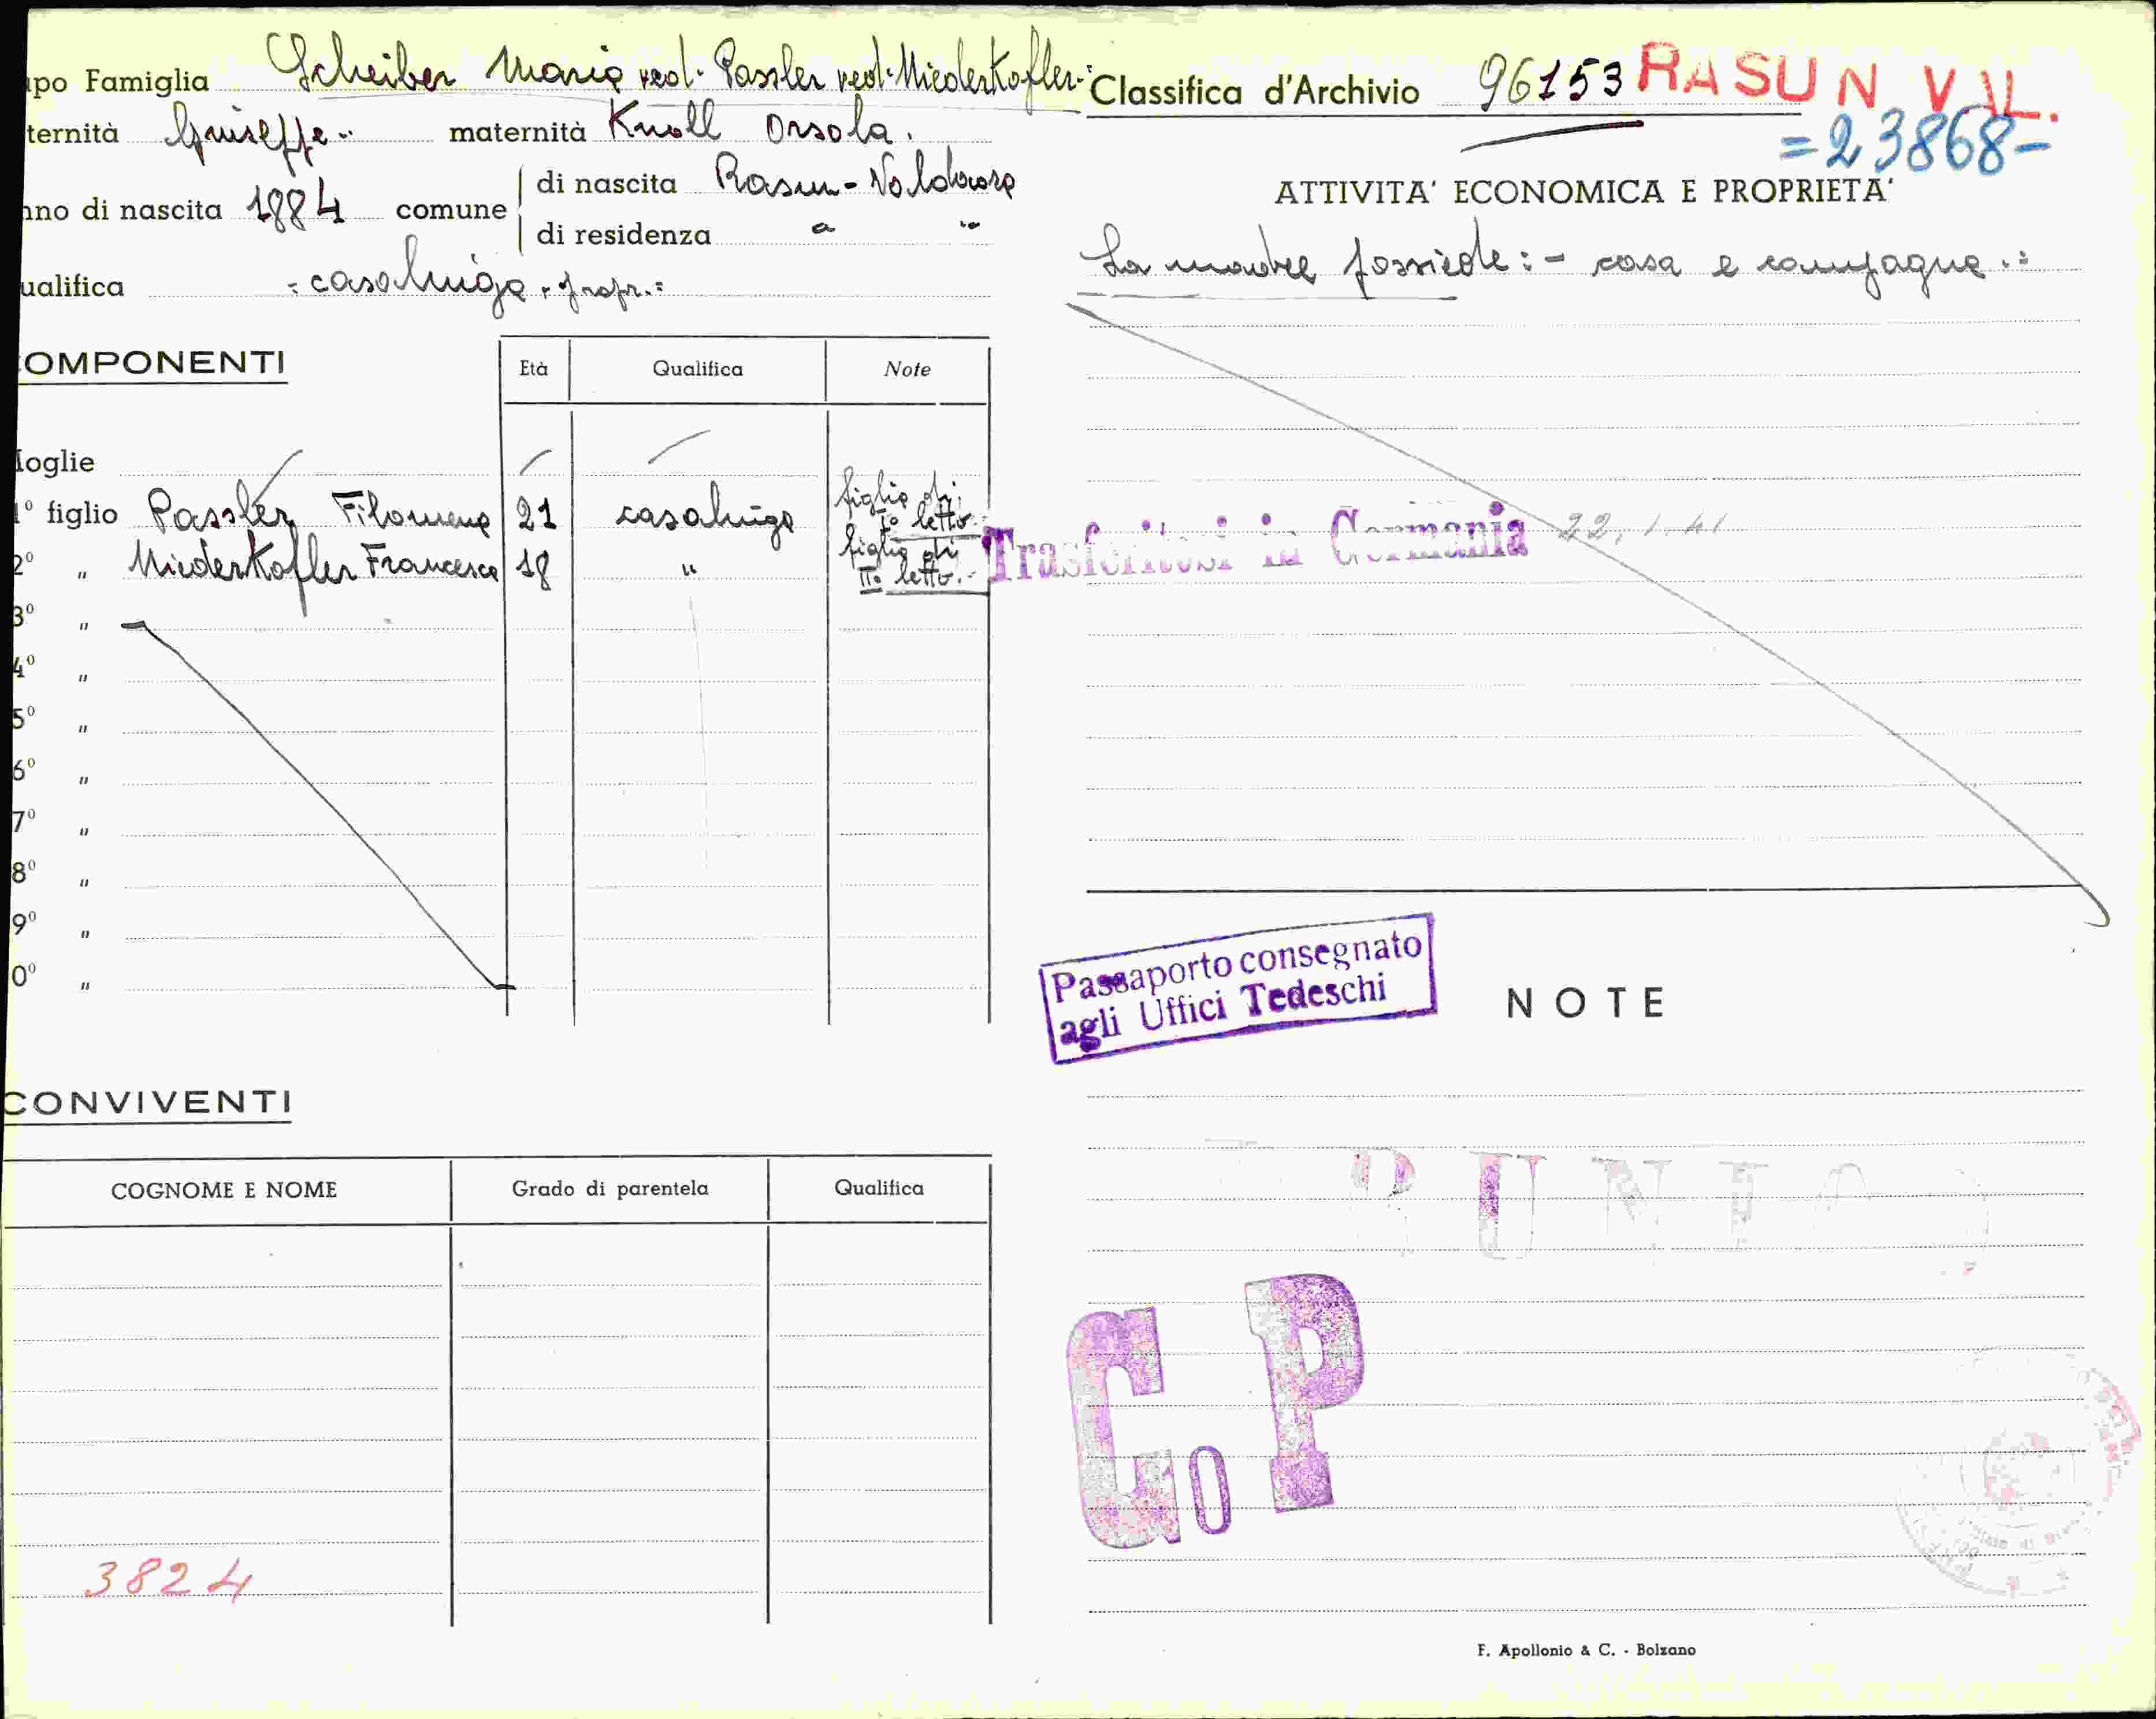 apo Famiglia Scheiber Maria ved. Passler ved. Niederkofler.:
ternità Giuseppe.. maternità Knoll Orsola.
nno di nascita 1884 comune di nascita Rasun-Valdaora
di residenza " "
ualifica =casalinga, propr.=
OMPONENTI
Età Qualifica Note
oglie
1° figlio Passler Filomena 21 casalinga figlia di I° letto
2° " Niederkofler Francesca 18 " figlia di II° letto.-
3° "
4° "
5° "
6° "
7° "
8° "
9° "
0° "
CONVIVENTI
COGNOME E NOME Grado di parentela Qualifica
3824
Classifica d'Archivio 96153 RASUN VAL.
=23868-
ATTIVITA' ECONOMICA E PROPRIETA'
La madre possiede:- casa e campagna.=
Trasferitosi in Germania 22.1.41
Passaporto consegnato
agli Uffici Tedeschi
NOTE
C0P
F. Apollonio & C. - Bolzano